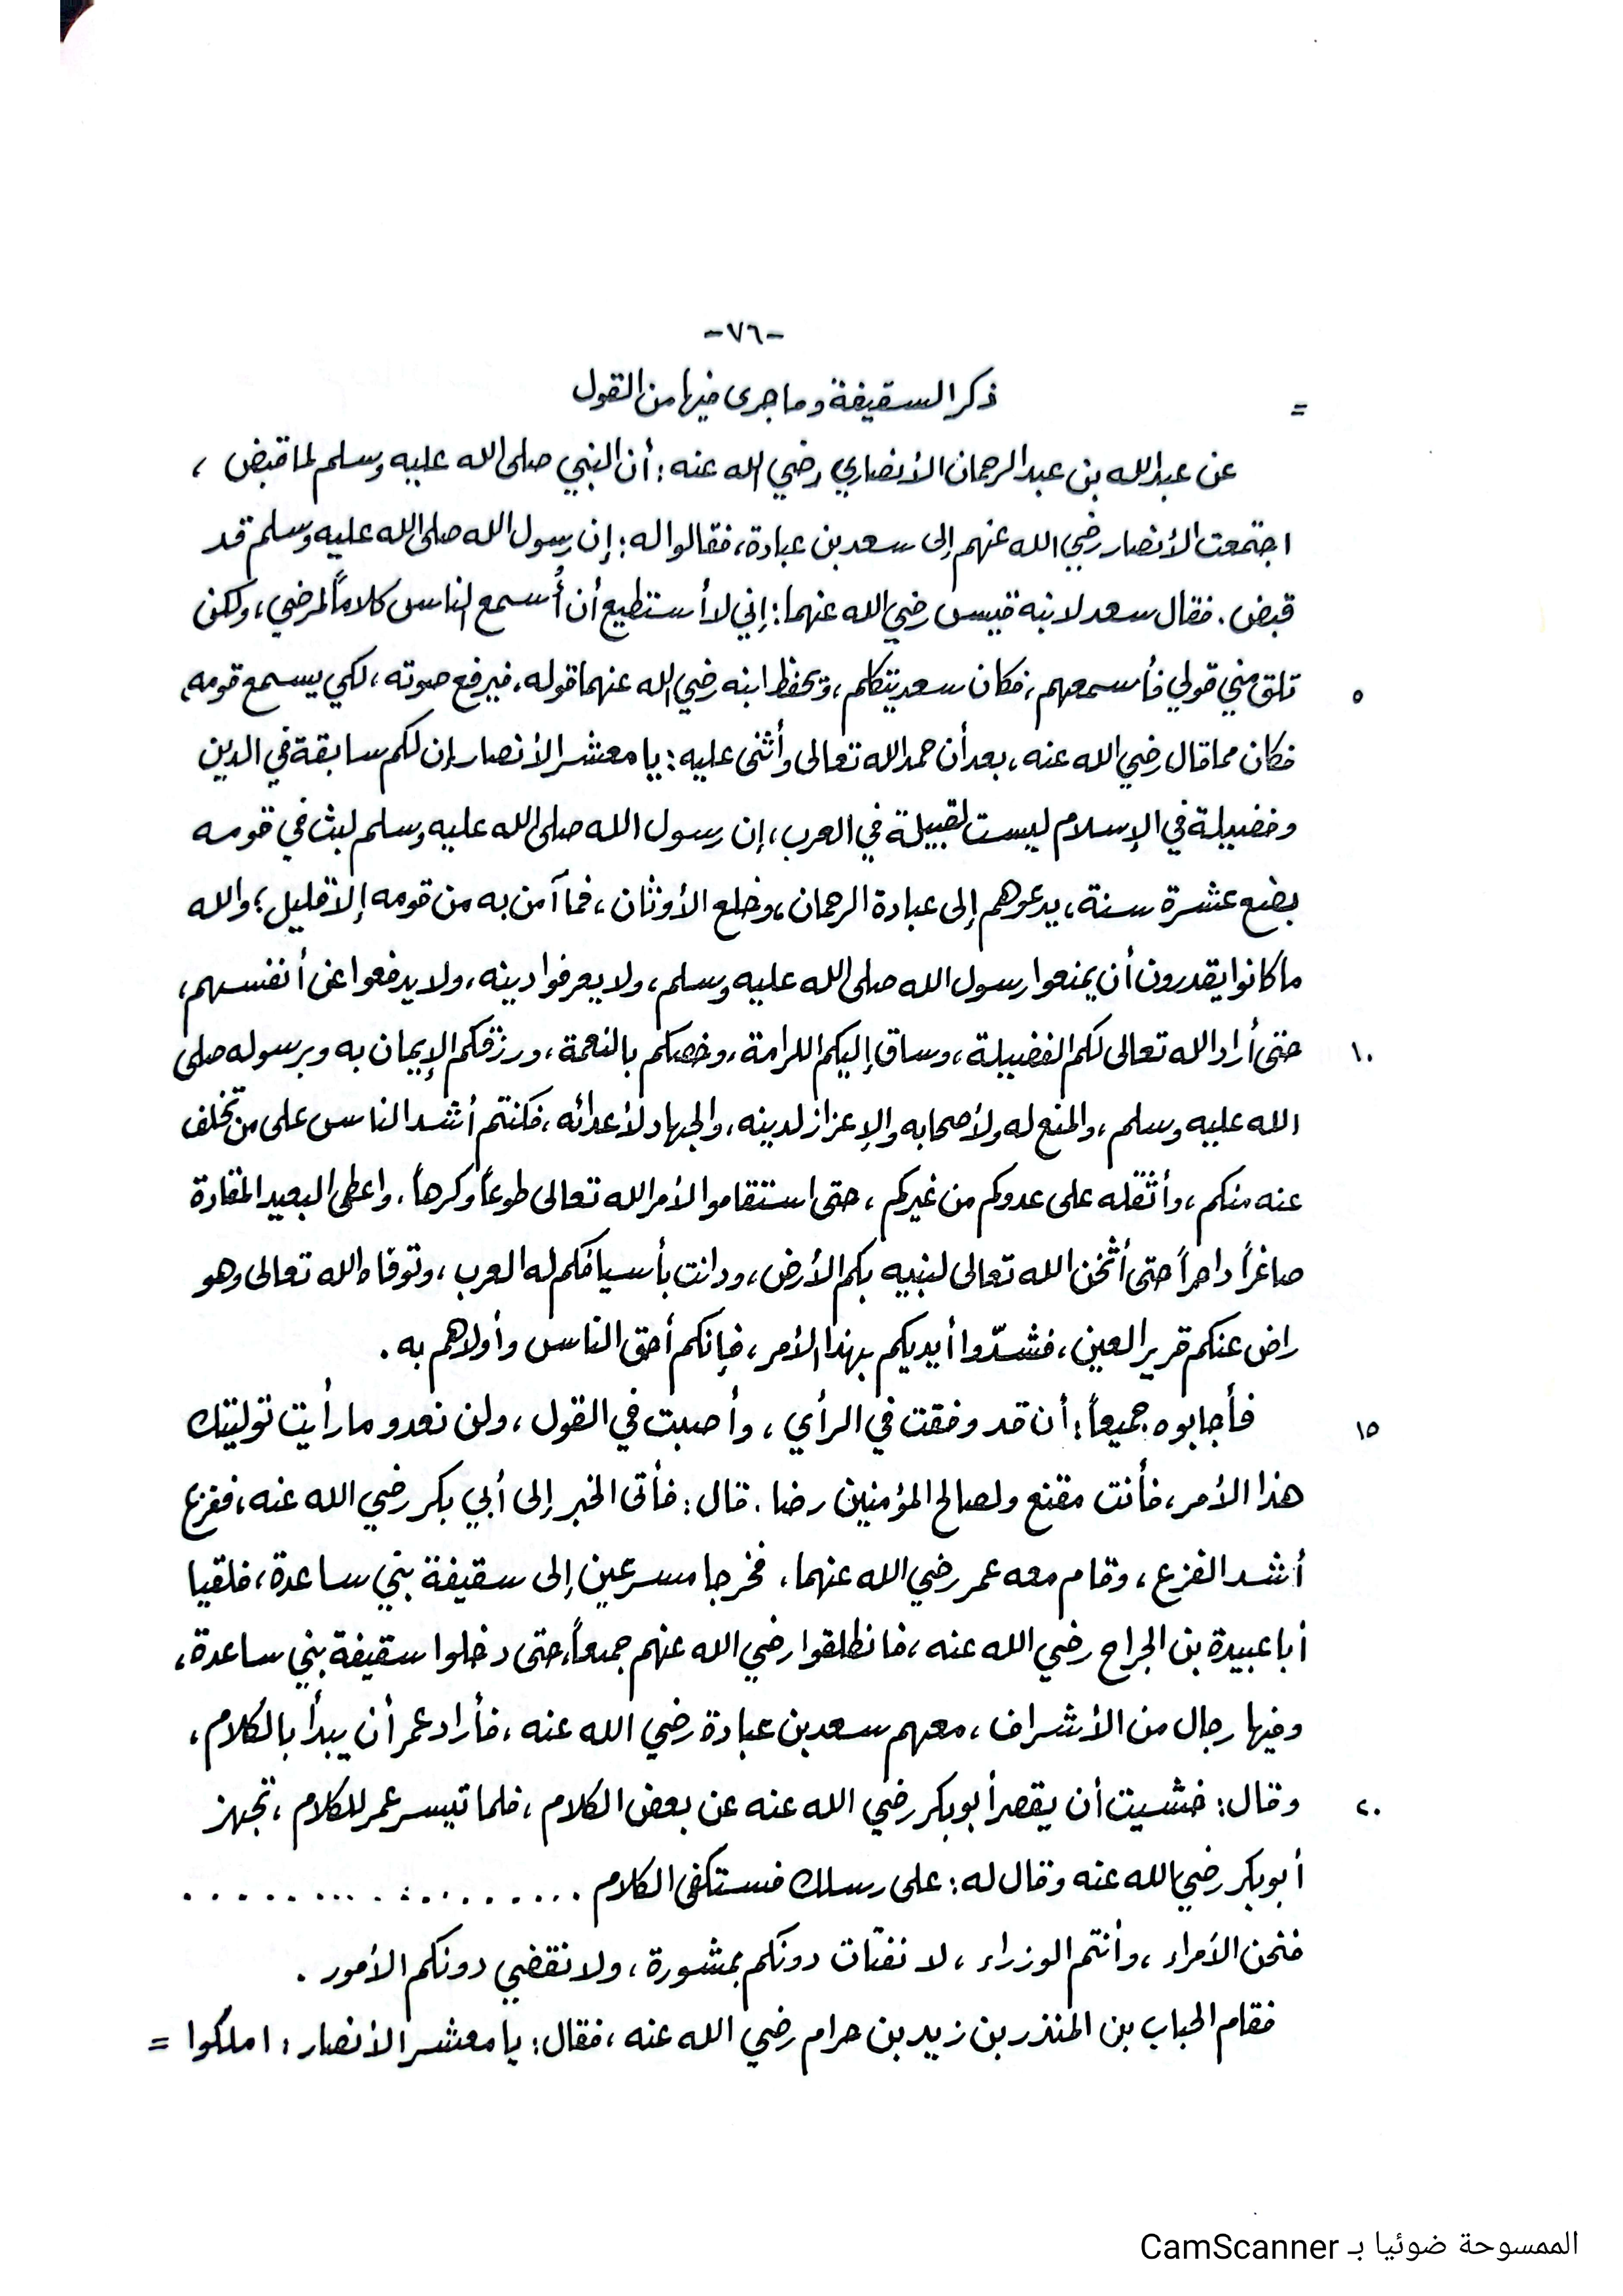 -٧٦-
= ذكر السقيفة وما جرى فيها من القول
عن عبدالله بن عبدالرحمان الأنصاري رضي الله عنه : أن النبي صلى الله عليه وسلم لما قبض ،
اجتمعت الأنصار رضي الله عنهم إلى سعد بن عبادة، فقالوا له : إن رسول الله صلى الله عليه وسلم قد
قبض . فقال سعد لابنه قيس رضي الله عنهما : إني لا أستطيع أن أُسمع الناس كلاماً لمرضي ، ولكن
٥ تلق مني قولي فأسمعهم ، فكان سعد يتكلم ، ويحفظ ابنه رضي الله عنهما قوله ، فيرفع صوته ، لكي يسمع قومه ،
فكان مما قال رضي الله عنه ، بعد أن حمد الله تعالى وأثنى عليه : يا معشر الأنصار إن لكم سابقة في الدين
وفضيلة في الإسلام ليست لقبيلة في العرب ، إن رسول الله صلى الله عليه وسلم لبث في قومه
بضع عشرة سنة ، يدعوهم إلى عبادة الرحمان ، وخلع الأوثان ، فما آمن به من قومه إلا قليل ؛ والله
ما كانوا يقدرون أن يمنعوا رسول الله صلى الله عليه وسلم ، ولا يعرفوا دينه ، ولا يدفعوا عن أنفسهم ،
١٠ حتى أراد الله تعالى لكم الفضيلة ، وساق إليكم الكرامة ، وخصكم بالنعمة ، ورزقكم الإيمان به وبرسوله صلى
الله عليه وسلم ، والمنع له ولأصحابه والإعزاز لدينه ، والجهاد لأعدائه ، فكنتم أشد الناس على من تخلف
عنه منكم ، وأثقله على عدوكم من غيركم ، حتى استقاموا لأمر الله تعالى طوعاً وكرهاً . واعطى البعيد المقادة
صاغراً داحراً حتى أثخن الله تعالى لنبيه بكم الأرض ، ودانت بأسيافكم له العرب ، وتوفاه الله تعالى وهو
راض عنكم قرير العين ، فشدّوا أيديكم بهذا الأمر ، فإنكم أحق الناس وأولاهم به .
١٥ فأجابوه جميعاً : أن قد وفقت في الرأي ، وأصبت في القول ، ولن نعدو ما رأيت توليتك
هذا الأمر ، فأنت مقنع ولصالح المؤمنين رضا . قال : فأتى الخبر إلى أبي بكر رضي الله عنه ، ففزع
أشد الفزع ، وقام معه عمر رضي الله عنهما ، فخرجا مسرعين إلى سقيفة بني ساعدة ، فلقيا
أبا عبيدة بن الجراح رضي الله عنه ، فانطلقوا رضي الله عنهم جميعاً ، حتى دخلوا سقيفة بني ساعدة ،
وفيها رجال من الأشراف ، معهم سعد بن عبادة رضي الله عنه ، فأراد عمر أن يبدأ بالكلام ،
٢٠ وقال : خشيت أن يقصر أبو بكر رضي الله عنه عن بعض الكلام ، فلما تيسر عمر للكلام ، تجهز
أبو بكر رضي الله عنه وقال له : على رسلك فستكفى الكلام . . . . . . . . . . . . . . . . . . . .
فنحن الأمراء ، وأنتم الوزراء ، لا نفتات دونكم بمشورة ، ولا نقضي دونكم الأمور .
فقام الحباب بن المنذر بن زيد بن حرام رضي الله عنه ، فقال : يا معشر الأنصار : املكوا =
الممسوحة ضوئيا بـ CamScanner